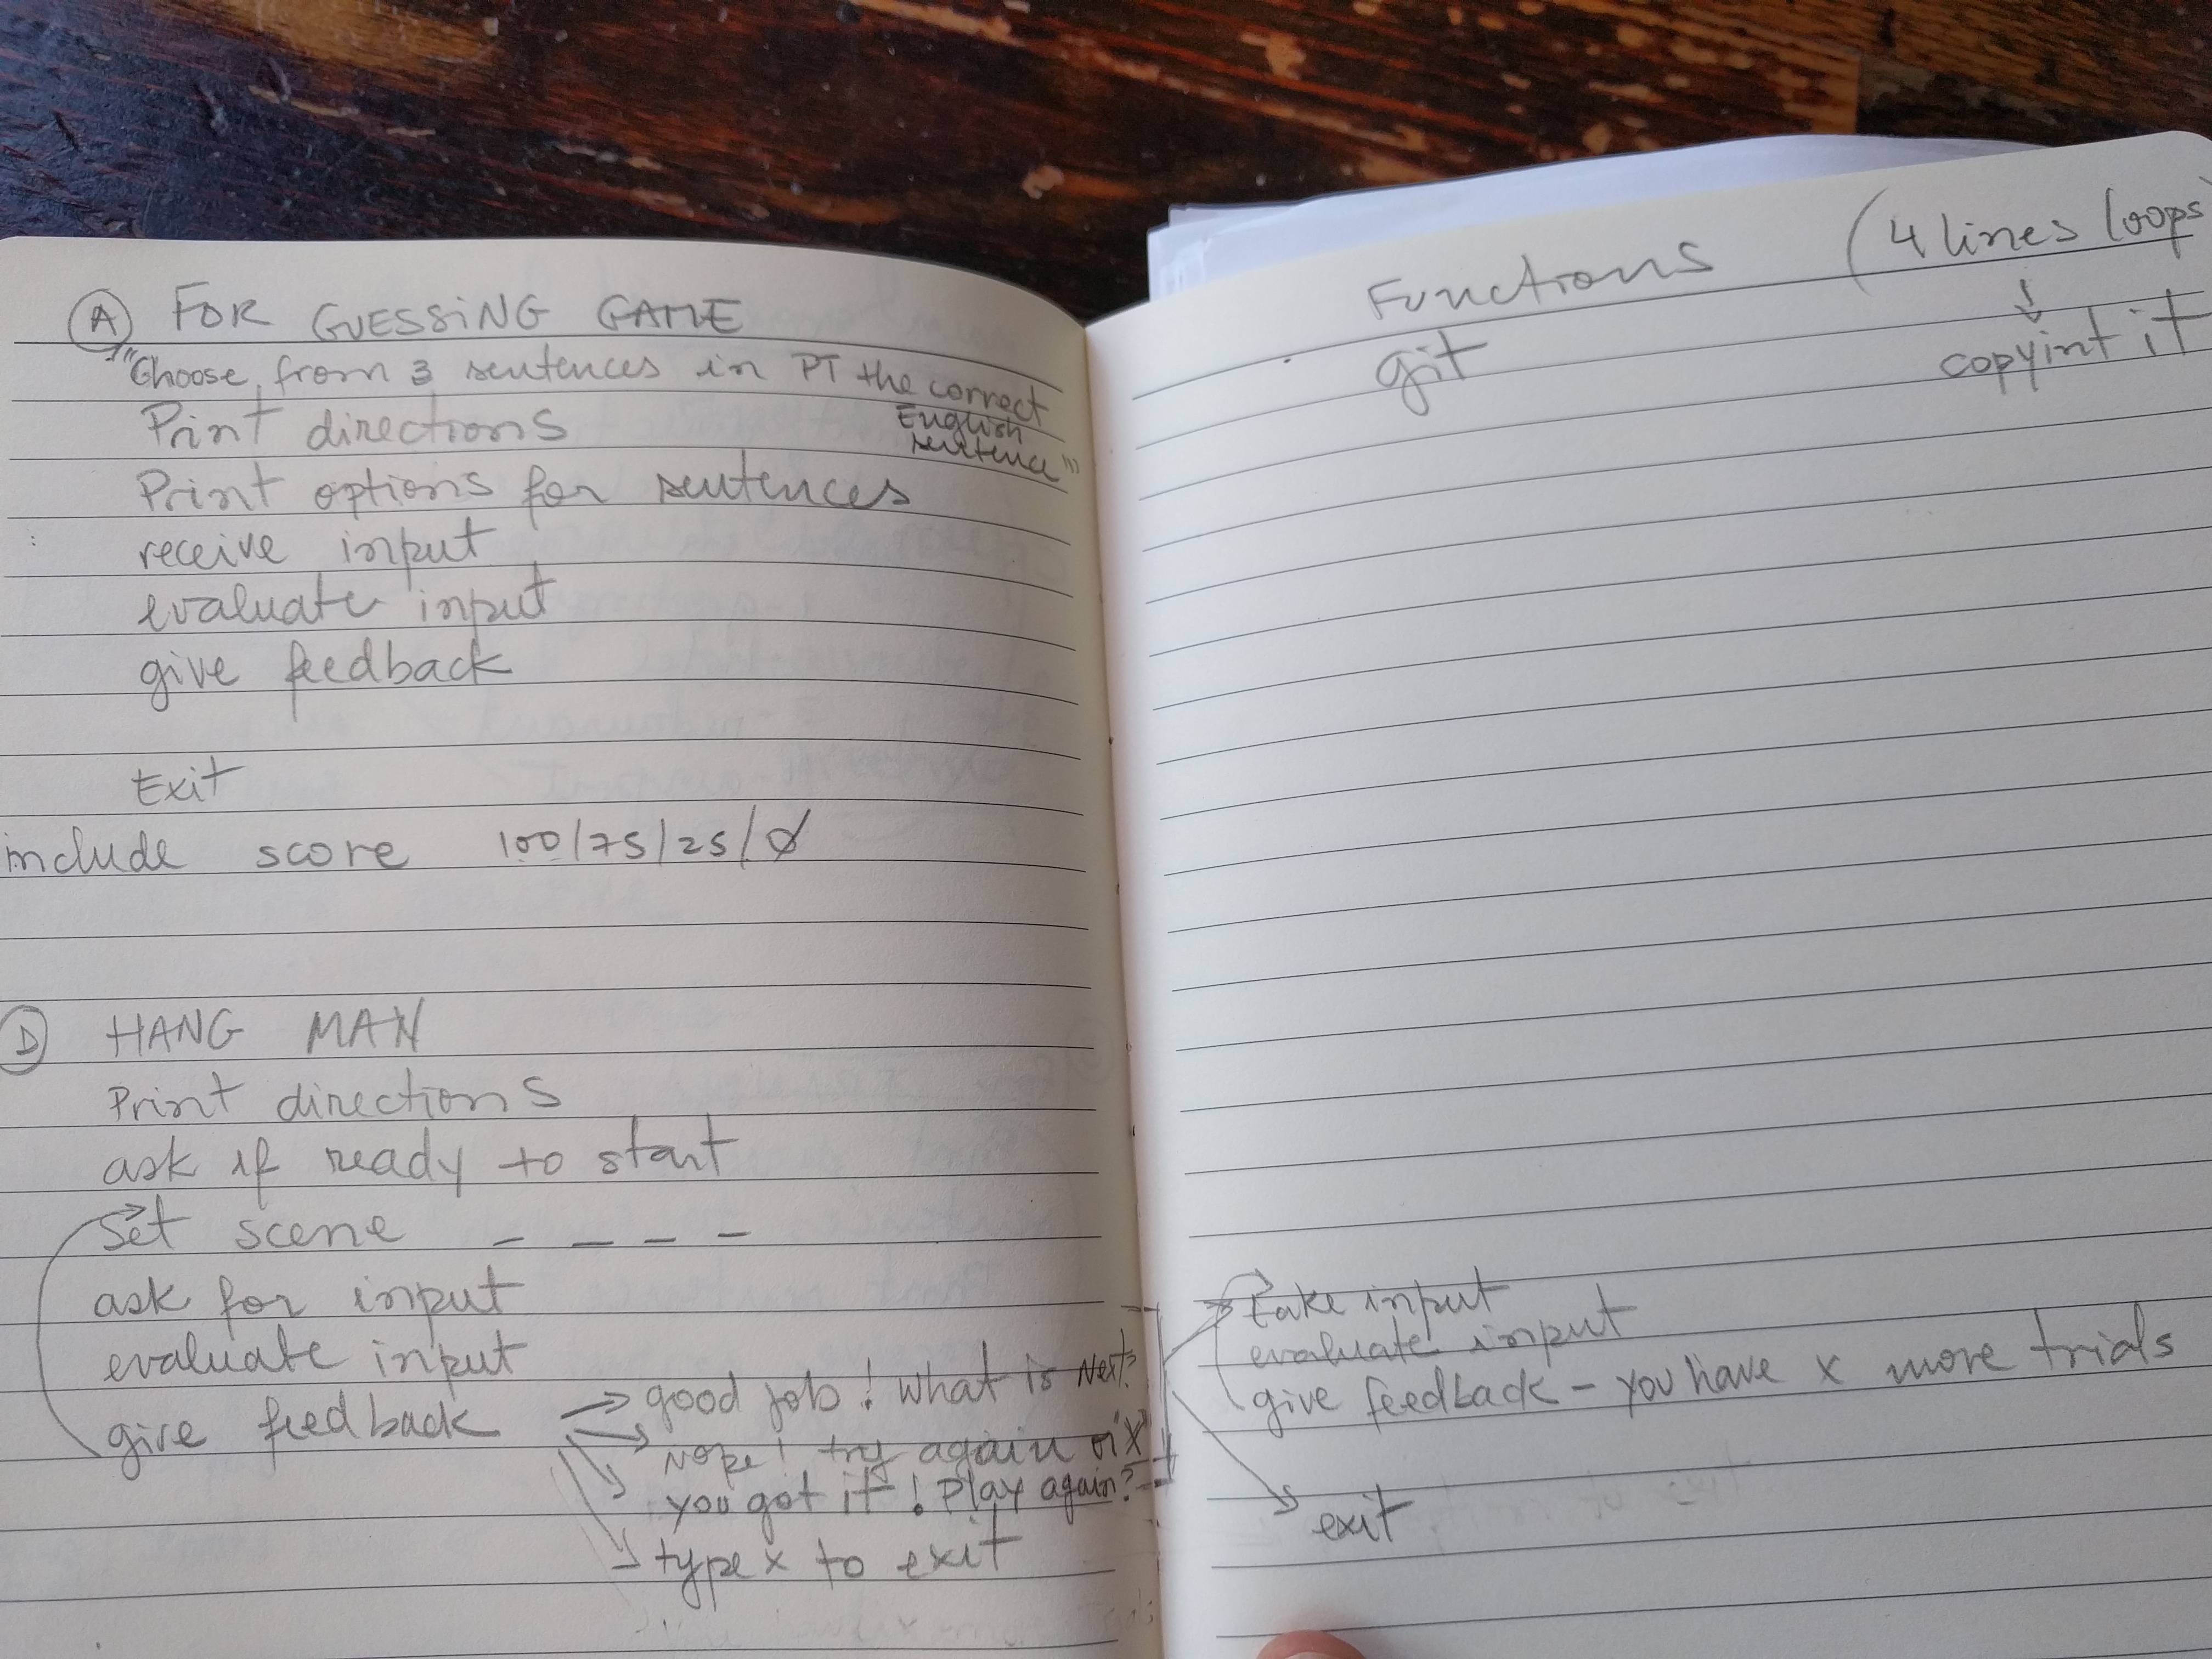 A FOR GUESSING GAME
"Choose from 3 sentences in PT the correct
English
sentence"
Print directions
Print options for sentences
receive input
evaluate input
give feedback
Exit
include score 100/75/25/0
D HANG MAN
Print directions
ask if ready to start
Set scene _ _ _ _
ask for input
evaluate input
give feedback → good job! What is next?
→ Nope! try again or "X"
→ you got it! Play again?
→ type x to exit
Functions (4 lines loops)
↓
git copyint it
take input
evaluate input
give feedback - you have x more trials
exit